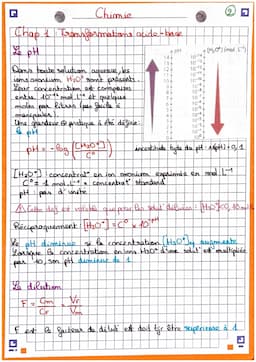 Chimie
2
Chap 1 Transformations acide-base
Le pH
Dans toute solution aqueuse, les
ions oxonium H₃O⁺ sont présents.
Leur concentration est comprise
entre 10⁻¹⁴ mol.L⁻¹ et quelques
moles par litres (pas facile à
manipuler)
Une grandeur pratique a été définie :
le pH
pH
[H₃O⁺] (mol.L⁻¹)
pH = -log ([H₃O⁺] / C°)
incertitude type du pH : u(pH) = 0,1
[H₃O⁺] : concentrat° en ion oxonium exprimée en mol.L⁻¹
C° = 1 mol.L⁻¹ = concentrat° standard
pH : pas d'unité
⚠ Cette def est valable que pour les solut° diluées : [H₃O⁺] < 0,
Réciproquement [H₃O⁺] = C° × 10⁻ᵖᴴ
Le pH diminue si la concentration [H₃O⁺] augmente
Lorsque la concentration en ions H₃O⁺ d'une solut° est multipliée
par 10, son pH diminue de 1
La dilution
F = Cm / Cf = Vf / Vm
F est le facteur de dilut° et doit tjr être supérieur à 1